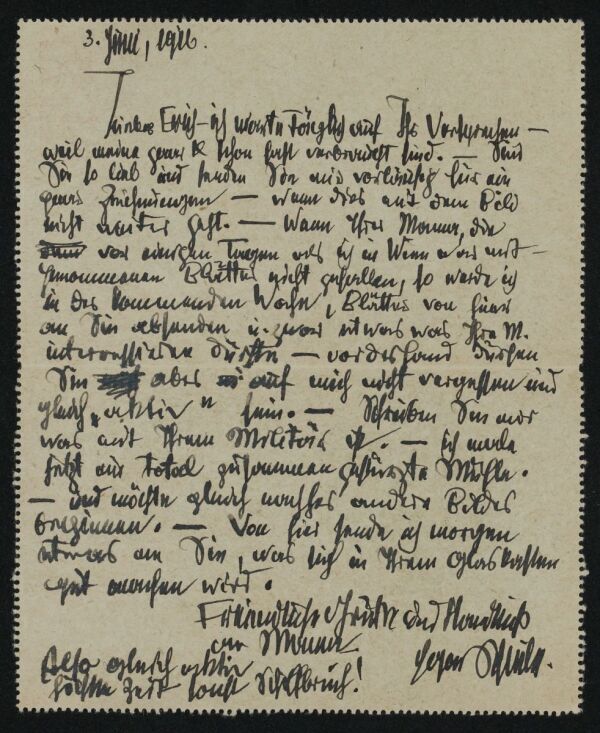 3. Juni, 1916.
Lieber Erich – ich warte täglich auf Ihr Versprechen –
weil meine ganz K schon fast verbraucht sind. – Sind
Sie so lieb und senden Sie mir vorläufig für ein
ganz – wenn dies mit dem Bild
nicht weiter geht. – Wenn Ihrer Mama, die
vor einigen Tagen als ich in Wien war mit-
genommenen Blätter nicht gefallen, so werde ich
in der kommenden Woche, Blätter von hier
an Sie absenden u. zwar etwas was Ihre M.
interessieren dürfte – vorderhand dürfen
Sie aber auf mich nicht vergessen und
gleich „aktiv" sein. – Schreiben Sie mir
was mit Ihrem Militär ist. – ich male
jetzt eine total zusammengestürzte Mühle.
– und möchte gleich nachher andere Bilder
beginnen. – Von hier sende ich morgen
etwas an Sie, was sich in Ihrem Glaskasten
gut machen wird.
Freundliche Grüße und Handkuß
an Mama
Egon Schiele.
Also gleich aktiv
höchste Zeit sonst Schiffbruch!